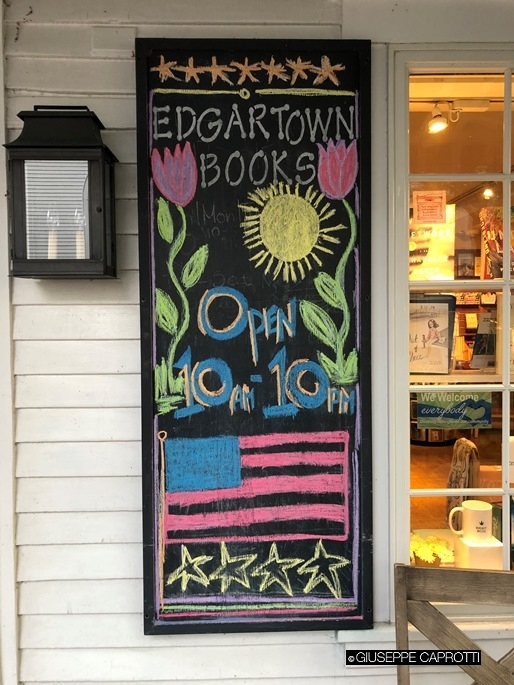 EDGARTOWN
BOOKS
OPEN
10AM-10PM
We Welcome
everybody
©GIUSEPPE CAPROTTI